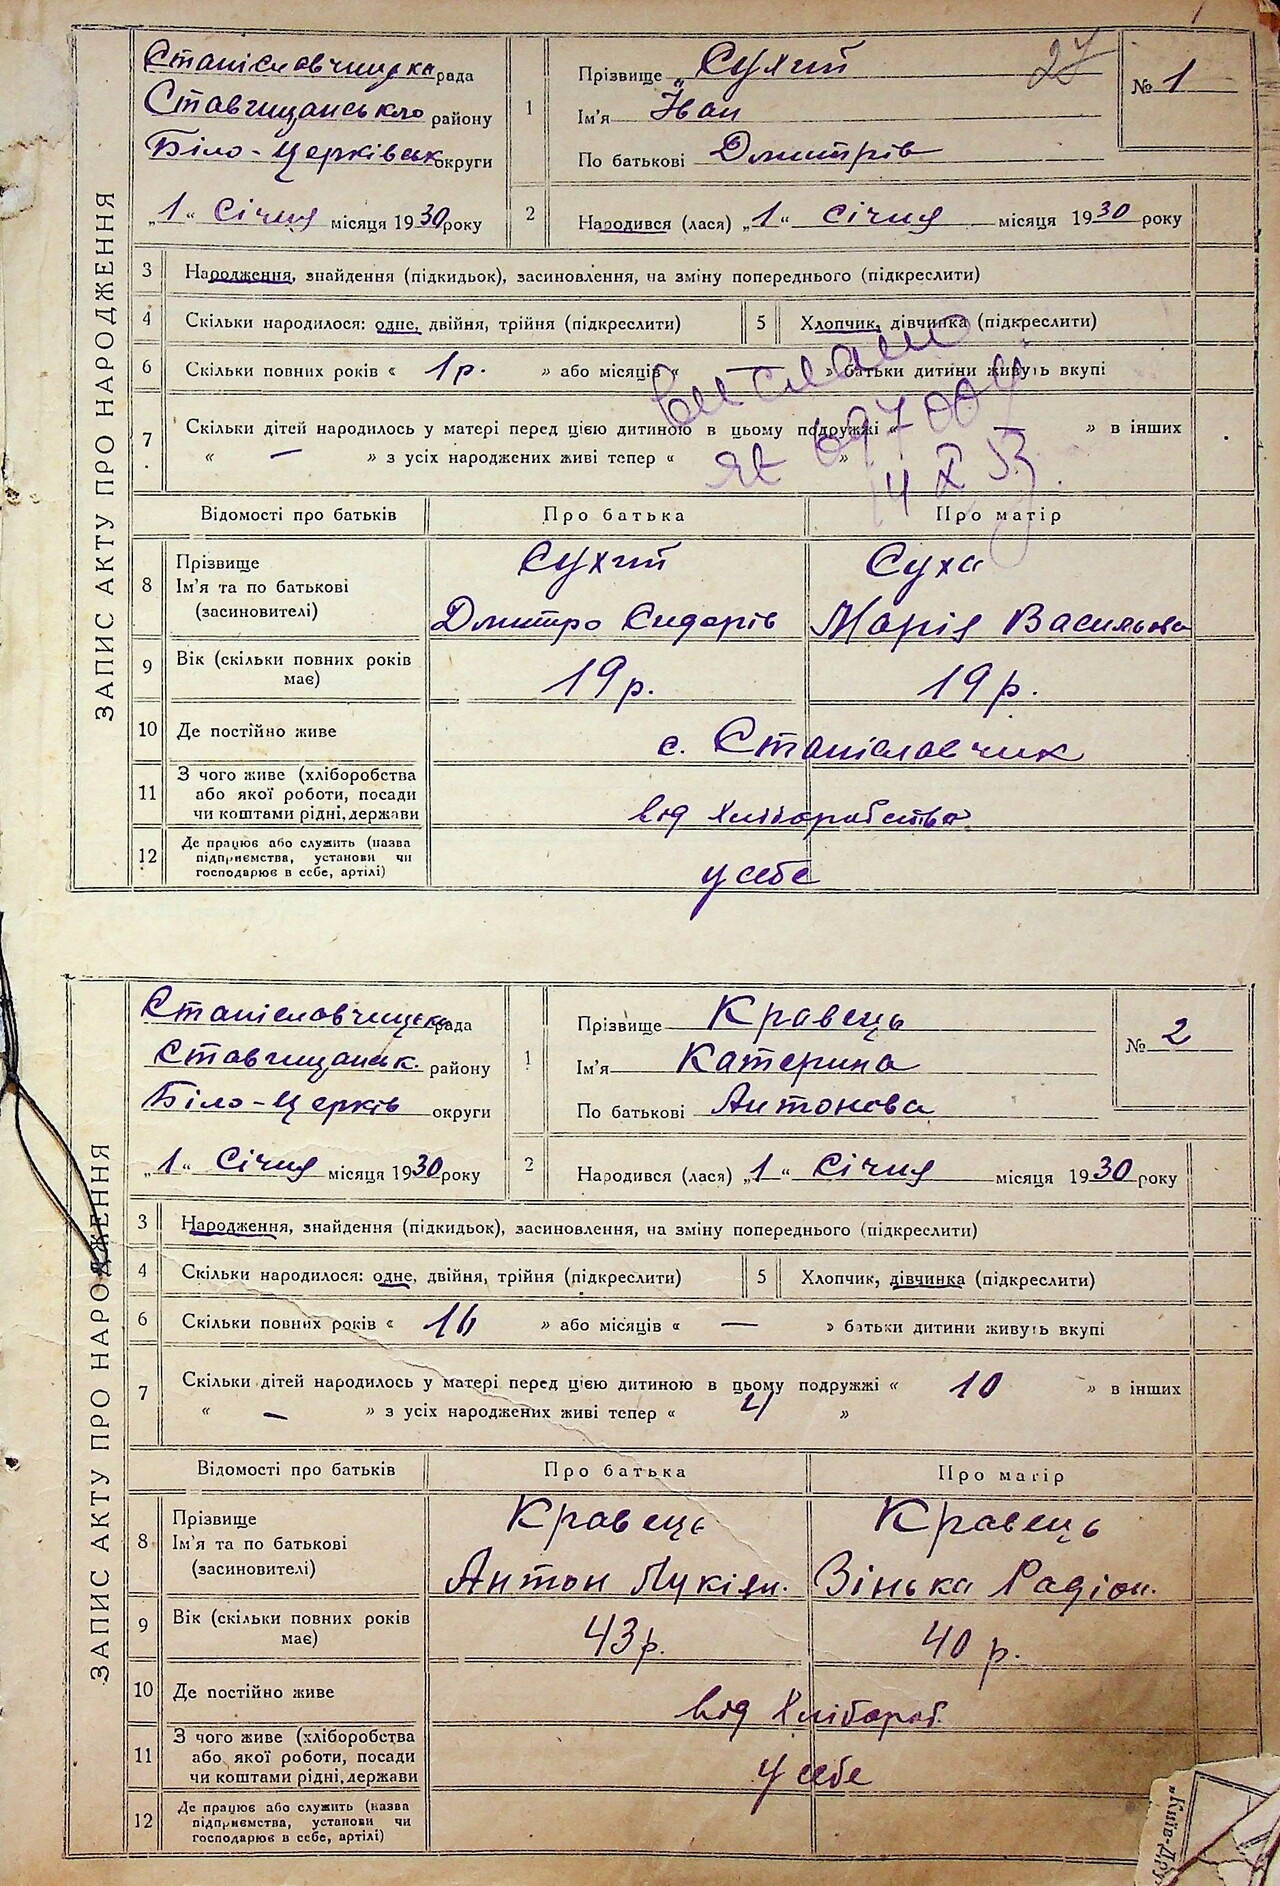 ЗАПИС АКТУ ПРО НАРОДЖЕННЯ
Станіславчицька рада
Ставищанського району
Біло-Церківськ округи
„1“ Січня місяця 1930 року
1 Прізвище Сухий
Ім'я Іван
По батькові Дмитрів
27
№ 1
2 Народився (лася) „1“ січня місяця 1930 року
3 Народження, знайдення (підкидьок), засиновлення, на зміну попереднього (підкреслити)
4 Скільки народилося: одне, двійня, трійня (підкреслити) 5 Хлопчик, дівчинка (підкреслити)
6 Скільки повних років « 1р. » або місяців « — » батьки дитини живуть вкупі
7 Скільки дітей народилось у матері перед цією дитиною в цьому подружжі « — » в інших
« — » з усіх народжених живі тепер « »
14 X 53
Відомості про батьків Про батька Про матір
8 Прізвище Сухий Суха
Ім'я та по батькові
(засиновителі) Дмитро Сидорів Марія Васильова
9 Вік (скільки повних років має) 19 р. 19 р.
10 Де постійно живе с. Станіславчик
11 З чого живе (хліборобства
або якої роботи, посади
чи коштами рідні, держави від хліборобства
12 Де працює або служить (назва
підприємства, установи чи
господарює в себе, артілі) у себе
ЗАПИС АКТУ ПРО НАРОДЖЕННЯ
Станіславчицька рада
Ставищанськ. району
Біло-Церків округи
„1“ Січня місяця 1930 року
1 Прізвище Кравець
Ім'я Катерина
По батькові Антонова
№ 2
2 Народився (лася) „1“ Січня місяця 1930 року
3 Народження, знайдення (підкидьок), засиновлення, на зміну попереднього (підкреслити)
4 Скільки народилося: одне, двійня, трійня (підкреслити) 5 Хлопчик, дівчинка (підкреслити)
6 Скільки повних років « » або місяців « — » батьки дитини живуть вкупі
7 Скільки дітей народилось у матері перед цією дитиною в цьому подружжі « 10 » в інших
« — » з усіх народжених живі тепер « 4 »
Відомості про батьків Про батька Про матір
8 Прізвище Кравець Кравець
Ім'я та по батькові
(засиновителі) Антон Лукіян. Зінька Радіон.
9 Вік (скільки повних років має) 43 р. 40 р.
10 Де постійно живе від хлібороб.
11 З чого живе (хліборобства
або якої роботи, посади
чи коштами рідні, держави у себе
12 Де працює або служить (назва
підприємства, установи чи
господарює в себе, артілі)
„Київ-Дру